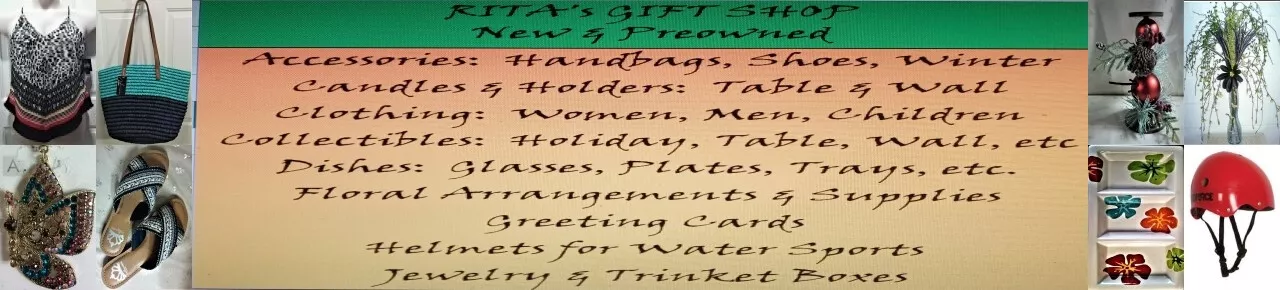 RITA's GIFT SHOP
New & Preowned
Accessories: Handbags, Shoes, Winter
Candles & Holders: Table & Wall
Clothing: Women, Men, Children
Collectibles: Holiday, Table, Wall, etc
Dishes: Glasses, Plates, Trays, etc.
Floral Arrangements & Supplies
Greeting Cards
Helmets for Water Sports
Jewelry & Trinket Boxes